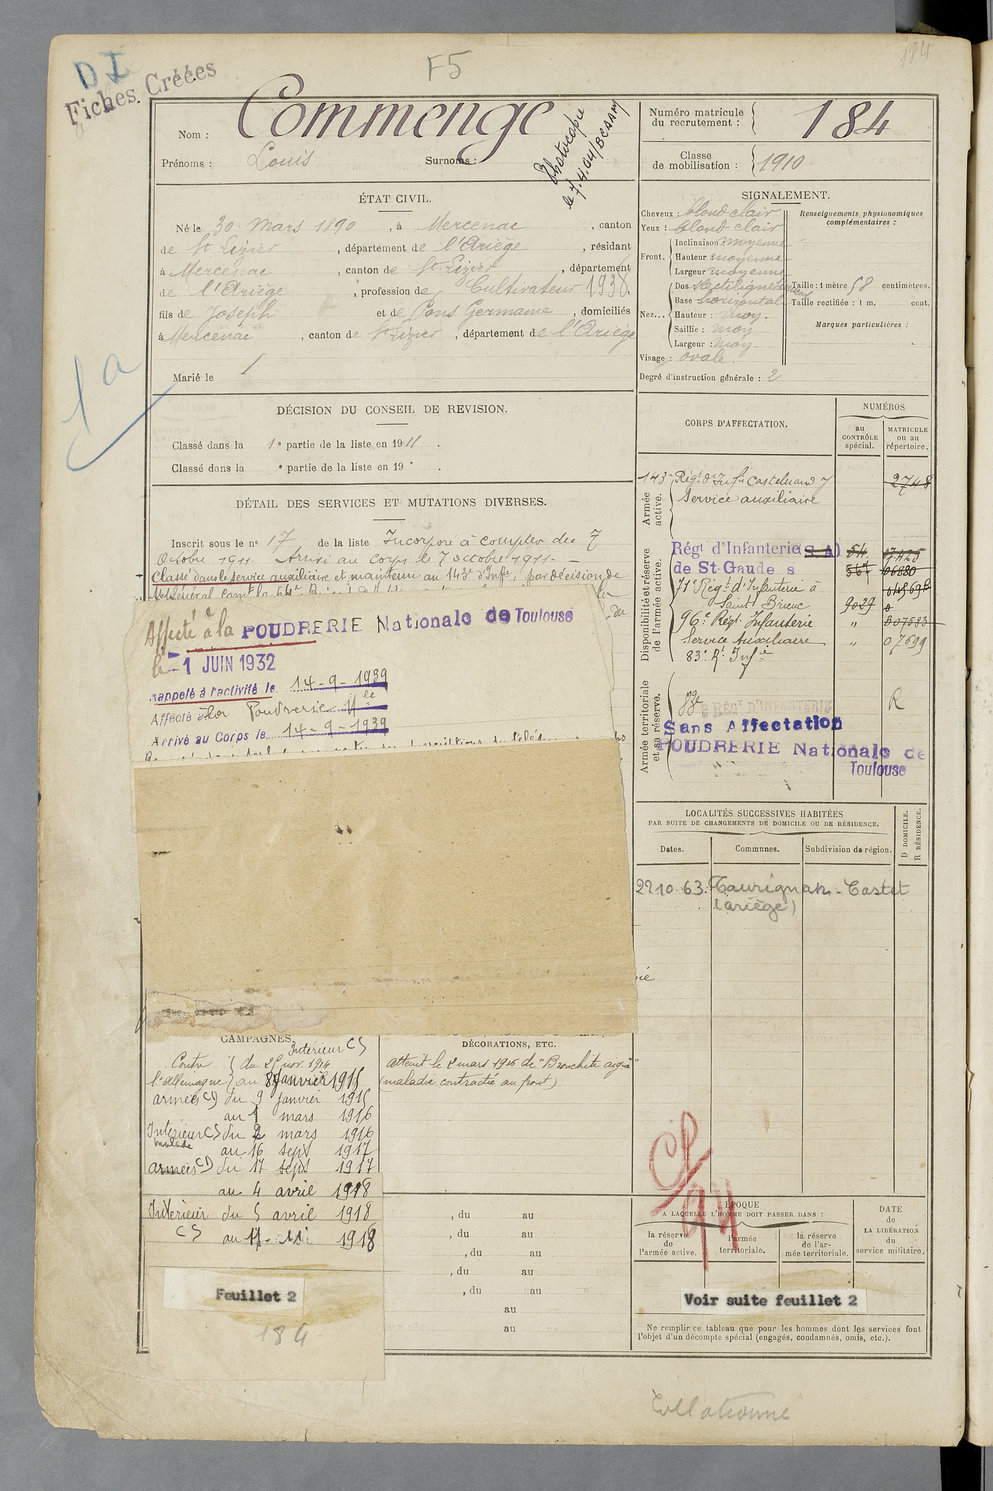 184
F5
DI
Fiches Créées
Nom : Commenge
Prénoms : Louis Surnoms :
Photocopie
le 7.4.04/BESANY
Numéro matricule du recrutement : 184
Classe de mobilisation : 1910
ÉTAT CIVIL.
Né le 30 mars 1890, à Mercenac, canton
de St Lizier, département de l'Ariège, résidant
à Mercenac, canton de St Lizier, département
de l'Ariège, profession de Cultivateur 1938
fils de Joseph et de Pons Germaine, domiciliés
à Mercenac, canton de St Lizier, département de l'Ariège
Marié le
1a
SIGNALEMENT.
Cheveux : blond clair
Yeux : blond clair
Front. Inclinaison moyenne
Hauteur moyenne
Largeur moyenne
Nez... Dos Rectiligne
Base horizontale
Hauteur : moy.
Saillie : moy
Largeur : moy
Visage : ovale
Renseignements physionomiques complémentaires :
Taille : 1 mètre 58 centimètres.
Taille rectifiée : 1 m. cent.
Marques particulières :
Degré d'instruction générale : 2
DÉCISION DU CONSEIL DE REVISION.
Classé dans la 1e partie de la liste en 1911.
Classé dans la e partie de la liste en 19 .
DÉTAIL DES SERVICES ET MUTATIONS DIVERSES.
Inscrit sous le no 17 de la liste Incorporé à compter du 7
Octobre 1911. Arrivé au corps le 7 octobre 1911.
Classé dans le service auxiliaire et maintenu au 143e d'Infie, par décision de
Affecté à la POUDRERIE Nationale de Toulouse
le -1 JUIN 1932
Rappelé à l'activité le 14-9-1939
Affecté à la Poudrerie Nle
Arrivé au Corps le 14-9-1939
CORPS D'AFFECTATION.
NUMÉROS
au CONTRÔLE spécial.
MATRICULE ou au répertoire.
Armée active.
143e Régt d'Infie Castelnaudy 2748
Service auxiliaire
Disponibilité et réserve de l'armée active.
Régt d'Infanterie (S A)
de St-Gaudens
71e Régt d'Infanterie à
Saint Brieuc 9027
96e Régt Infanterie "
Service Auxiliaire " 07699
83e Rt Infie
Armée territoriale et sa réserve.
RÉGt D'INFANTERIE R
Sans Affectation
POUDRERIE Nationale de
Toulouse
LOCALITÉS SUCCESSIVES HABITÉES
PAR SUITE DE CHANGEMENTS DE DOMICILE OU DE RÉSIDENCE.
Dates. Communes. Subdivision de région. D DOMICILE. R RÉSIDENCE.
22 10 63. Taurignan-Castet
(ariège)
CAMPAGNES.
Intérieur CS
Contre l'Allemagne du 25 nov. 1914
au 8 janvier 1915
armées CD du 9 janvier 1915
au 1 mars 1916
Intérieur CS du 2 mars 1916
malade
au 16 sept 1917
armées CD du 17 sept 1917
au 4 avril 1918
Intérieur du 5 avril 1918
CS au 1918
DÉCORATIONS, ETC.
atteint le 2 mars 1916 de "Bronchite aigüe"
(maladie contractée au front)
, du au
, du au
, du au
, du au
, du au
au
au
CP/94
ÉPOQUE
A LAQUELLE L'HOMME DOIT PASSER DANS :
la réserve de l'armée active.
l'armée territoriale.
la réserve de l'armée territoriale.
DATE
DE
LA LIBÉRATION
du
service militaire.
Feuillet 2
184
Voir suite feuillet 2
Ne remplir ce tableau que pour les hommes dont les services font
l'objet d'un décompte spécial (engagés, condamnés, omis, etc.).
Collationné